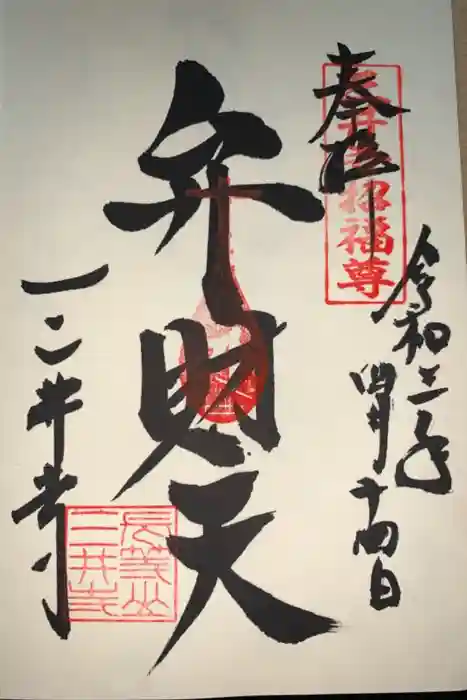 奉拝
招福尊
令和三年
四月十四日
弁財天
三井寺
長等山
三井寺